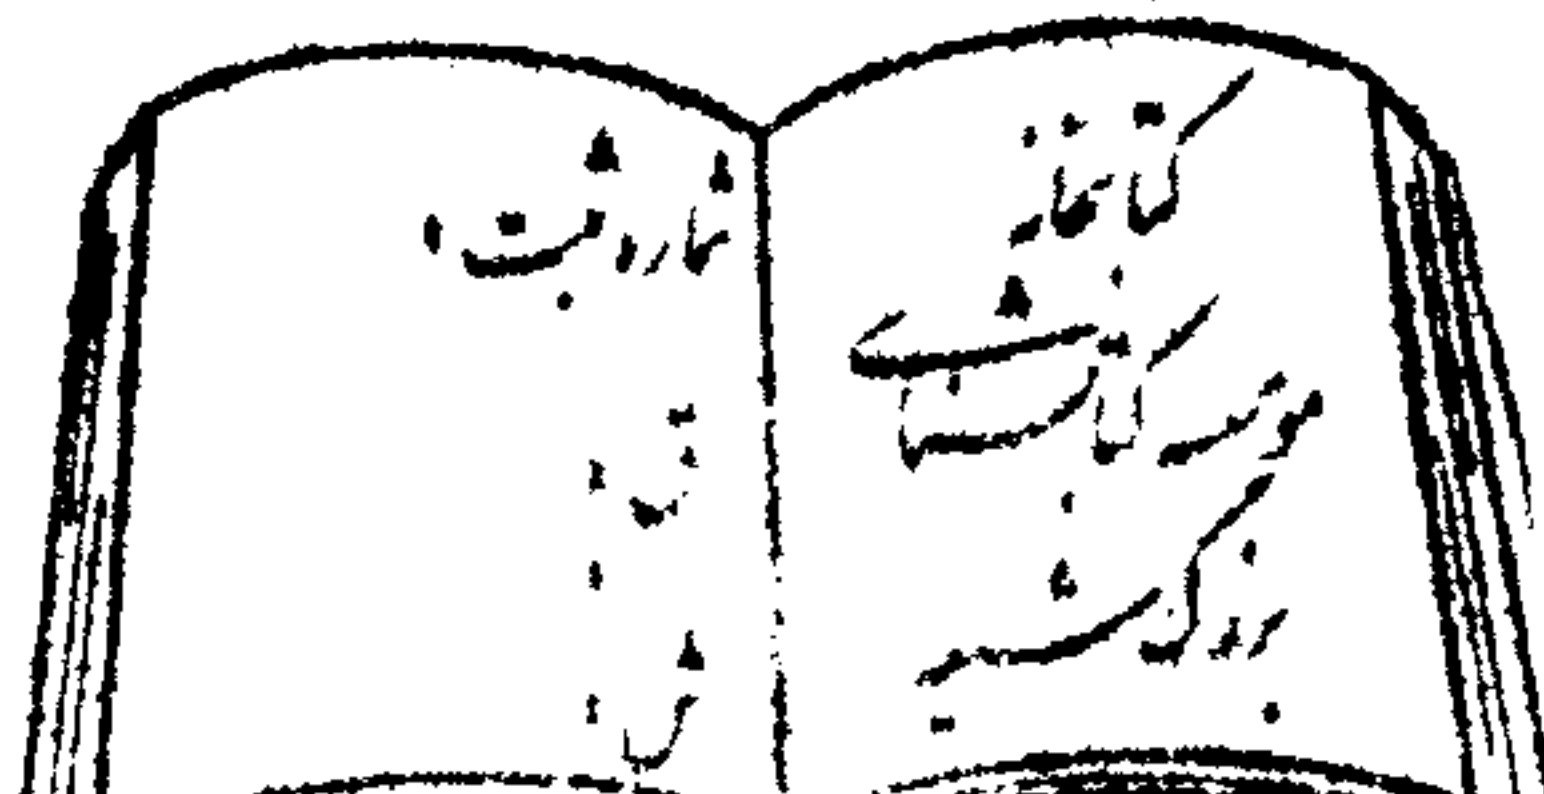 کتابخانه
مؤسسه کتابشناسی
بزرگ شیعه
شماره ثبت :
ق :
:
ش :